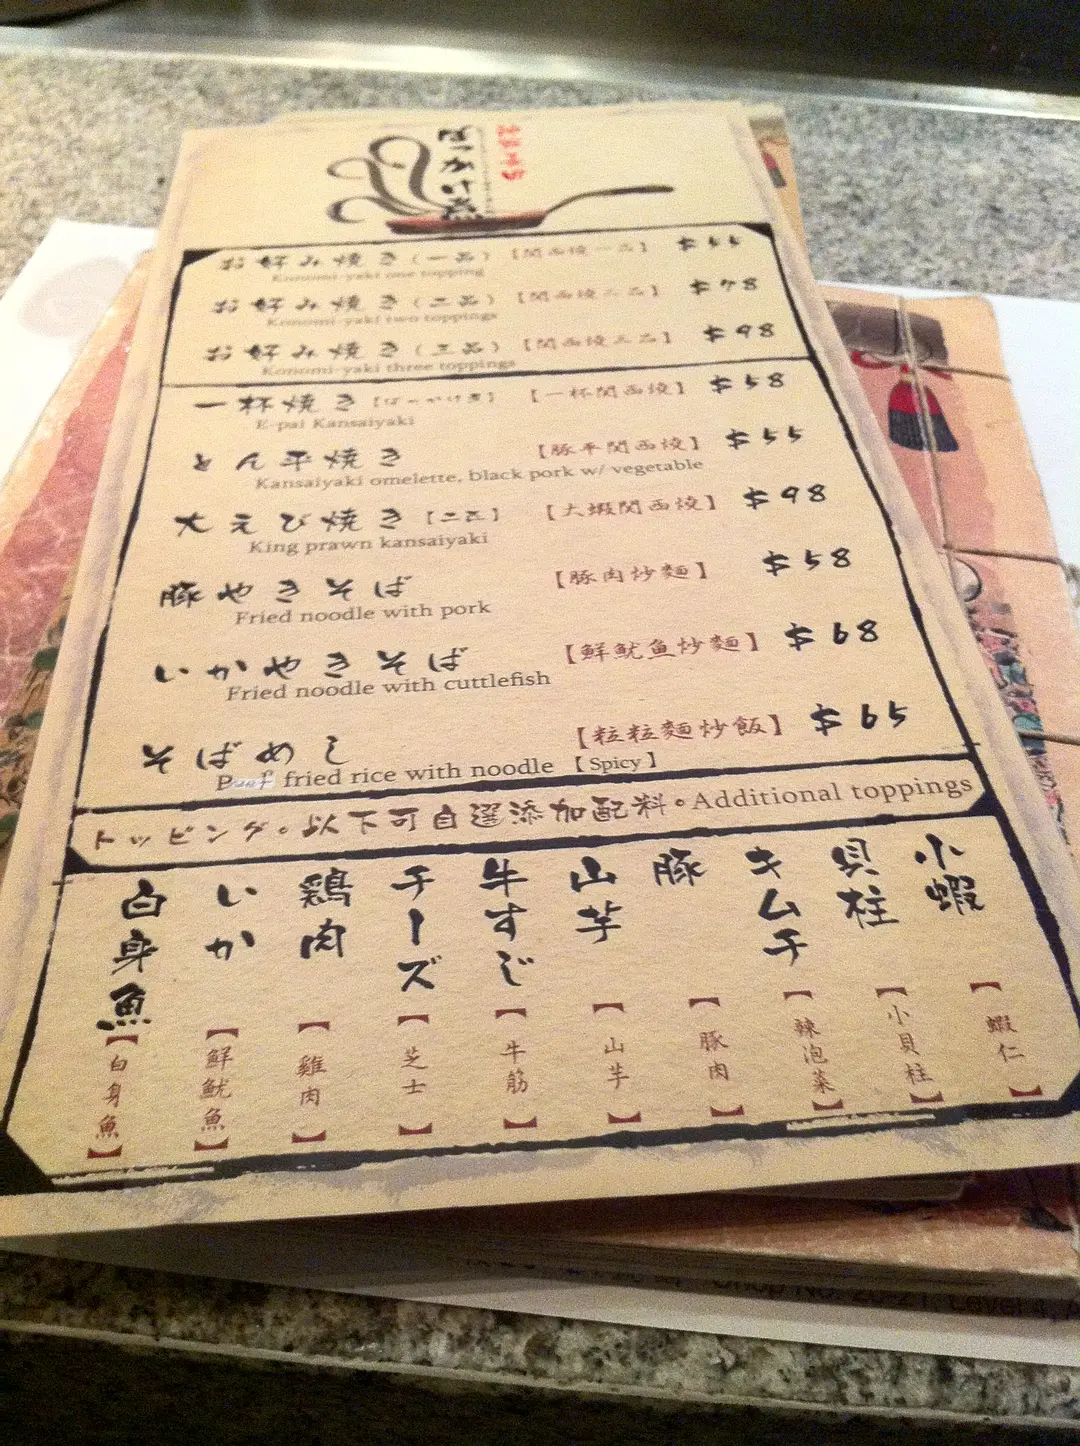 ぼっかけ焼
お好み焼き(一品)【関西燒一品】 $55
Konomi-yaki one topping
お好み焼き(二品)【関西燒二品】 $78
Konomi-yaki two toppings
お好み焼き(三品)【関西燒三品】 $98
Konomi-yaki three toppings
一杯焼き【ぼっかけ焼】【一杯関西燒】 $58
E-pai Kansaiyaki
とん平焼き【豚平関西燒】 $55
Kansaiyaki omelette, black pork w/ vegetable
大えび焼き【二匹】【大蝦関西燒】 $98
King prawn kansaiyaki
豚やきそば【豚肉炒麵】 $58
Fried noodle with pork
いかやきそば【鮮魷魚炒麵】 $68
Fried noodle with cuttlefish
そばめし【粒粒麵炒飯】 $65
Beef fried rice with noodle【Spicy】
トッピング。以下可自選添加配料。Additional toppings
小蝦【蝦仁】
貝柱【小貝柱】
キムチ【辣泡菜】
豚【豚肉】
山芋【山芋】
牛すじ【牛筋】
チーズ【芝士】
鶏肉【雞肉】
いか【鮮魷魚】
白身魚【白身魚】
Shop No. 20-21, Level 4,